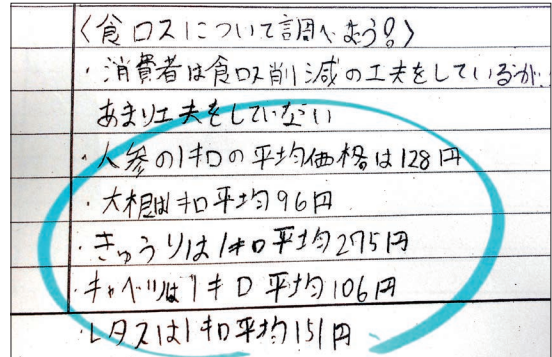 〈食ロスについて調べよう!〉
・消費者は食ロス削減の工夫をしているか。
あまり工夫をしていない
・人参の1キロの平均価格は128円
・大根はキロ平均96円
・きゅうりは1キロ平均275円
・キャベツは1キロ平均106円
・レタスは1キロ平均151円